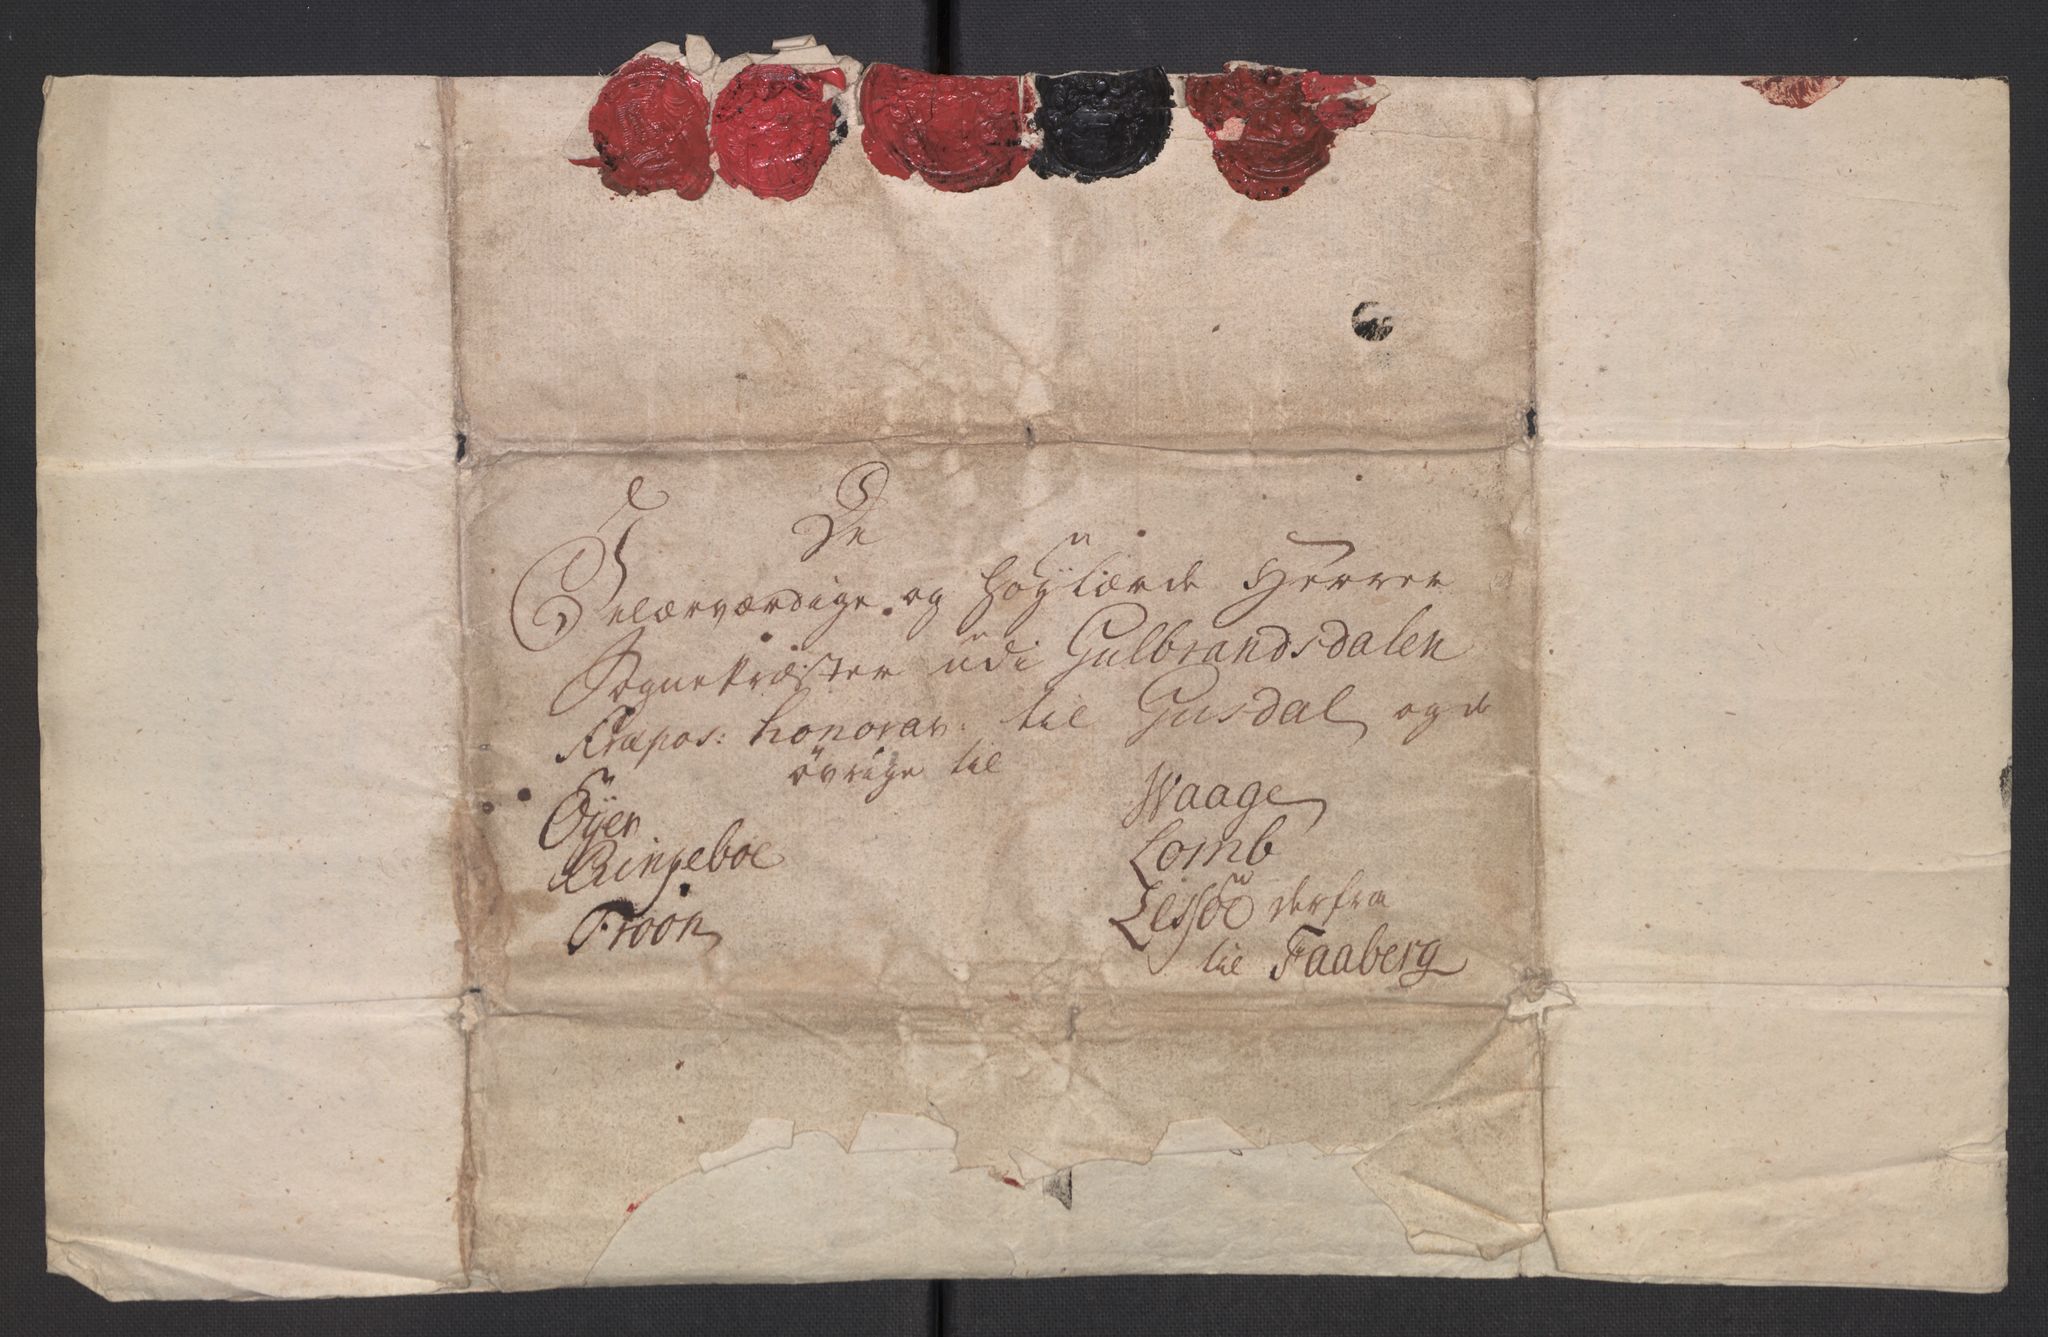 De
Velærværdige og Høylærde Herrer
Sognepræster udi Gulbrandsdalen
Præpos: honorar: til Gusdal og de
övrige til
Öÿer
Ringeboe
Froon
Waage
Lomb
Lessöe derfra
til Faaberg